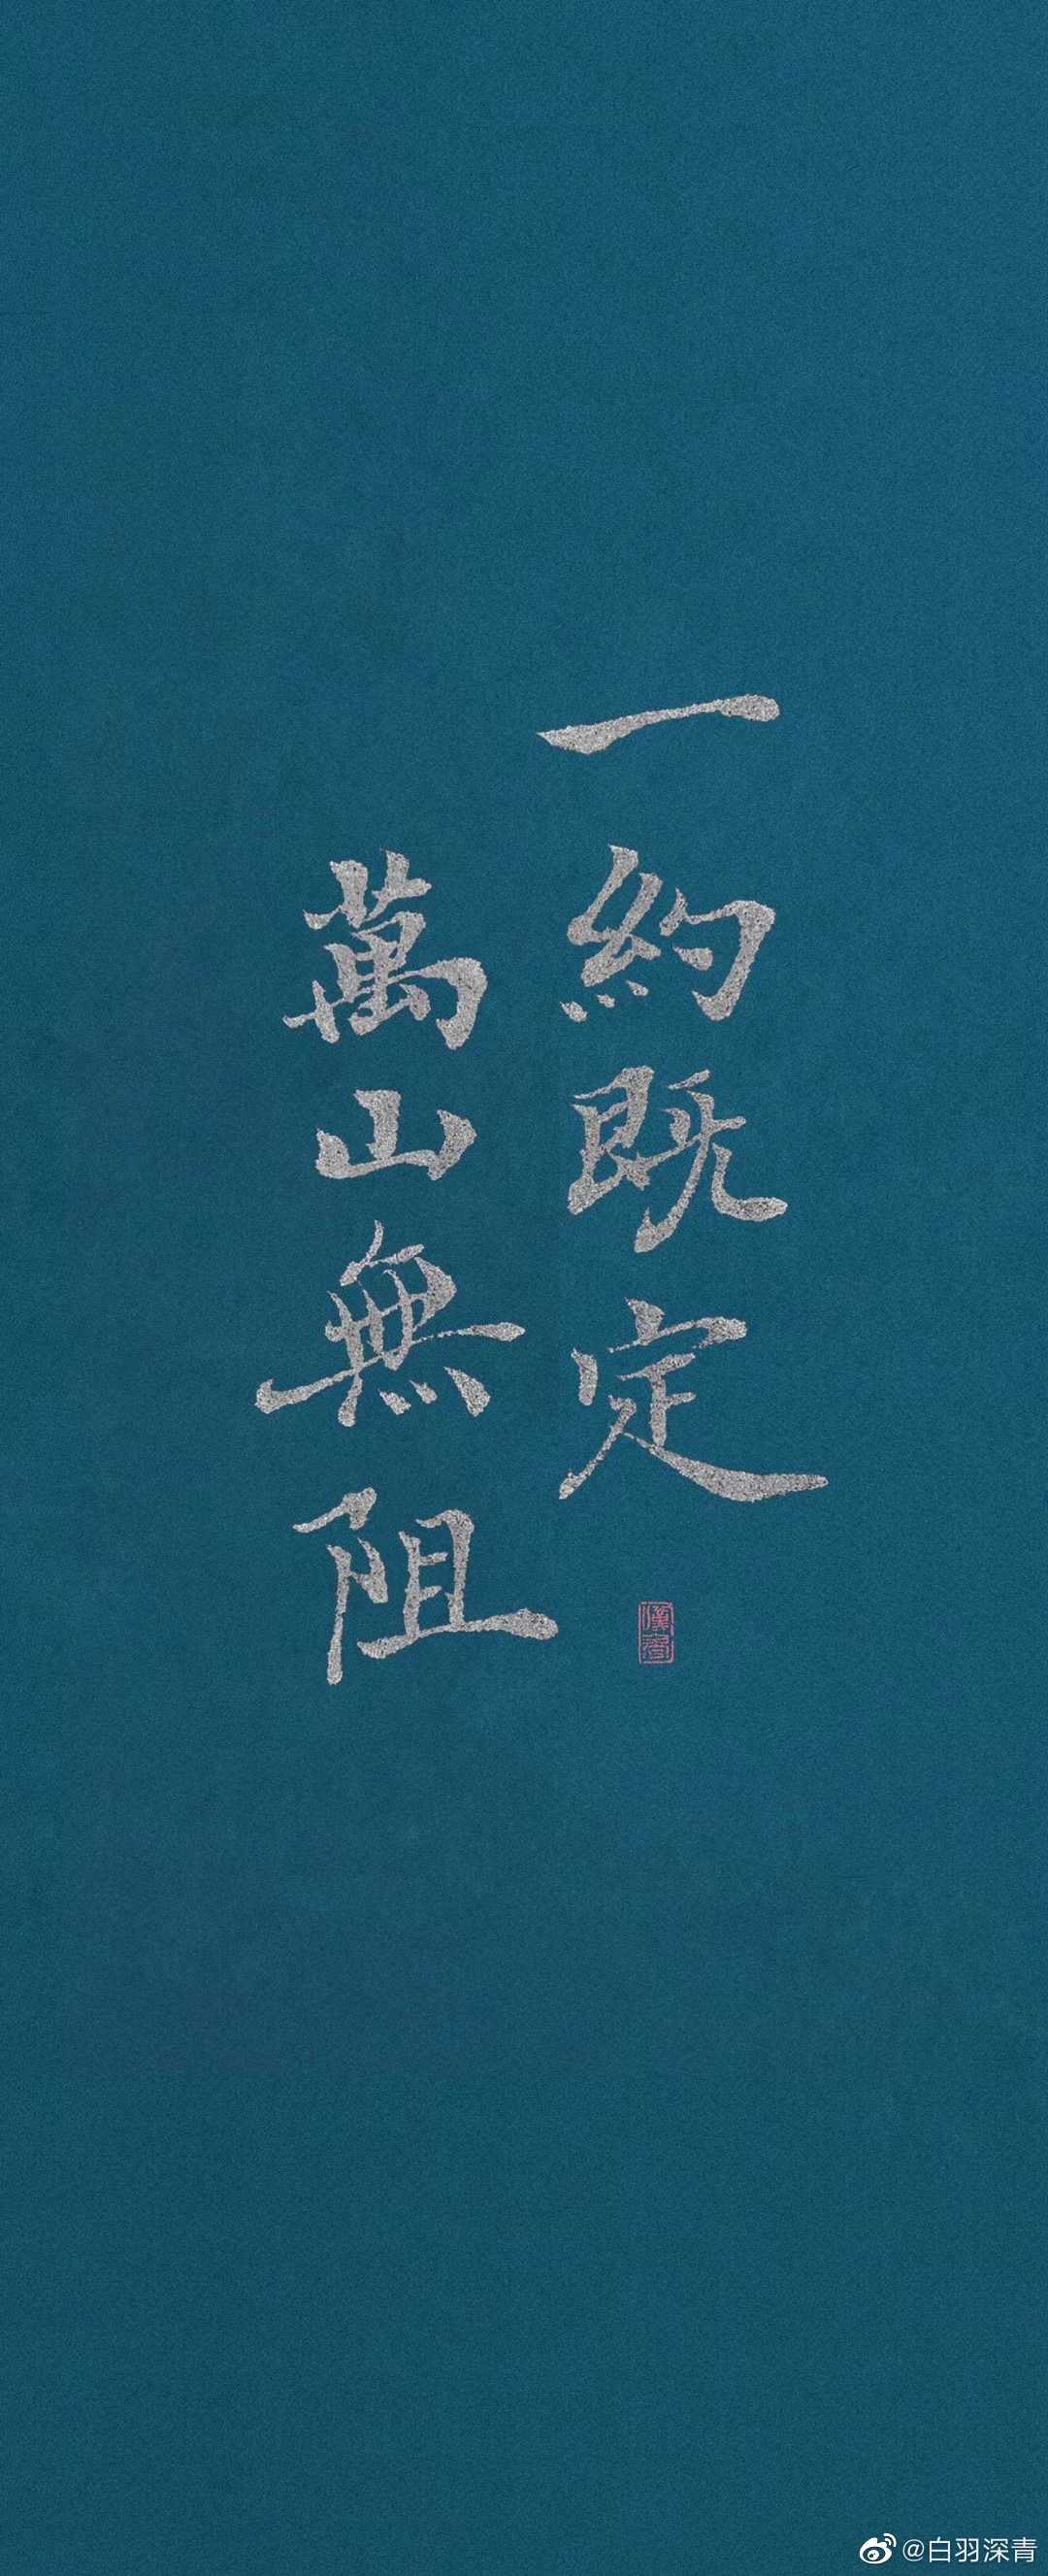 一約既定
萬山無阻
@白羽深青